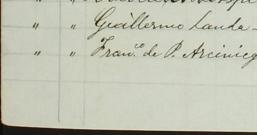 " " Guillermo Lande
" " Fran.co de P. Arcinieg